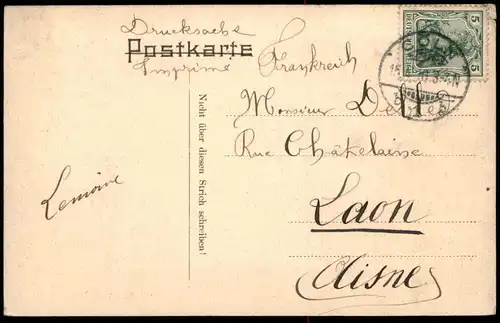 Drucksache
Postkarte
Imprimé Frankreich
Monsieur
Rue Châtelaine
Laon
(Aisne)
Lemoine
Nicht über diesen Strich schreiben!
5
5
DEUTSCHES REICH